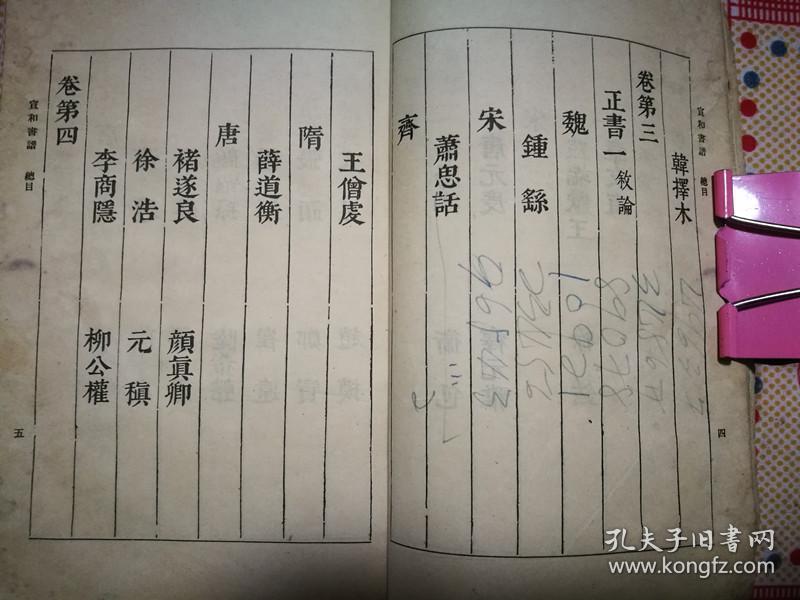 宣和書譜 總目
四
韓擇木
卷第三
正書一 敘論
魏
鍾繇
宋
蕭思話
齊
王僧虔
隋
薛道衡
唐
褚遂良 顏眞卿
徐浩 元稹
李商隱 柳公權
卷第四
宣和書譜 總目
五
孔夫子旧书网
www.kongfz.com